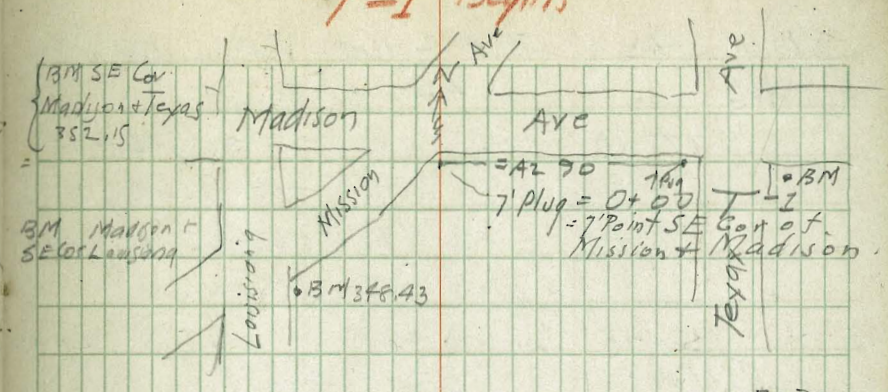 Ave
Ave
{BM SE Cor
Madison + Texas
352.15
=
Madison
Ave
= AZ 90
7' Plug
7' Plug = 0+00
= 7' Point SE Cor of
Mission + Madison
T-1
BM
Mission
BM Madison +
SE Cor Louisiana
Louisiana
BM 348.43
Texas